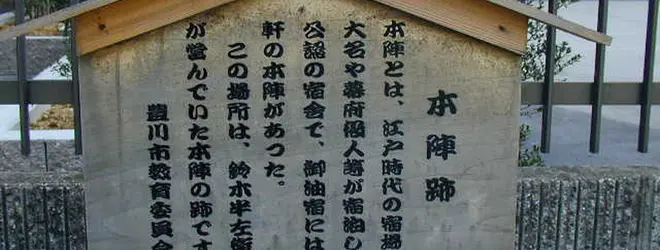 本陣跡
本陣とは、江戸時代の宿場
大名や幕府役人等が宿泊し
公認の宿舎で、御油宿には
軒の本陣があった。
この場所は、鈴木半左衛
が営んでいた本陣の跡です
豊川市教育委員会